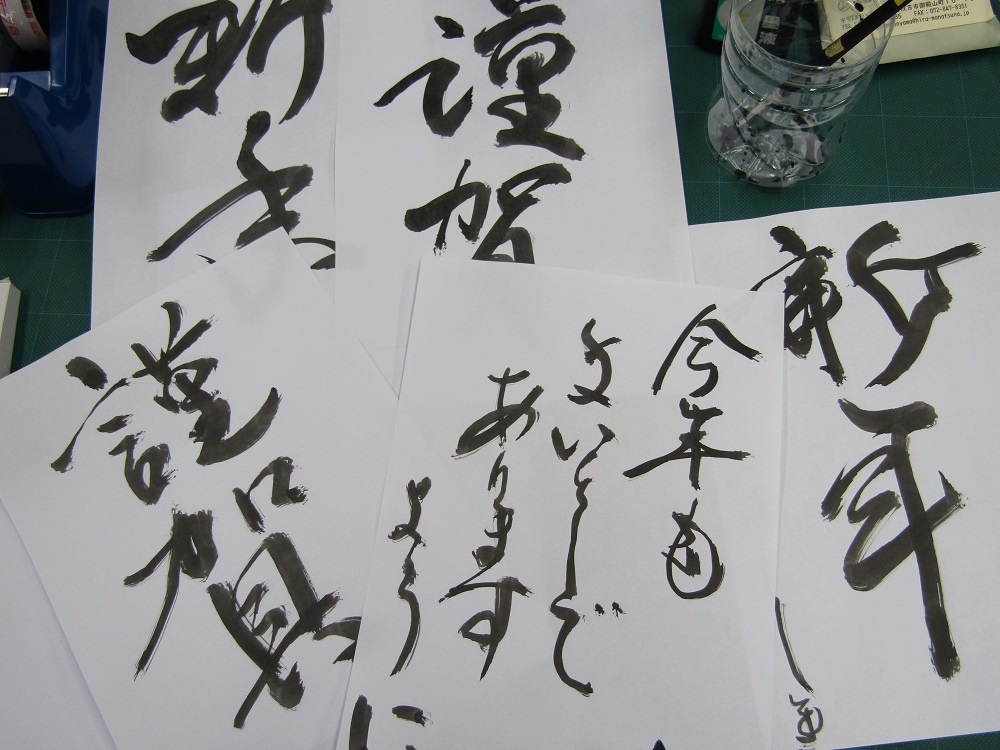 謹賀
新年
謹賀
新年
今年も
よいとしで
あります
よう
に
FAX:072-847-8351